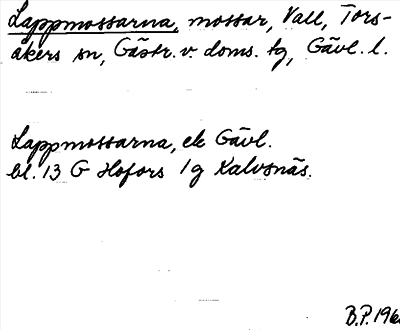 Lappmossarna, mossar, Vall, Tors-
åkers sn, Gästr. v. doms. tg, Gävl. l.
Lappmossarna, ek Gävl.
bl. 13 G Hofors 1g Kalvsnäs.
B.P. 196